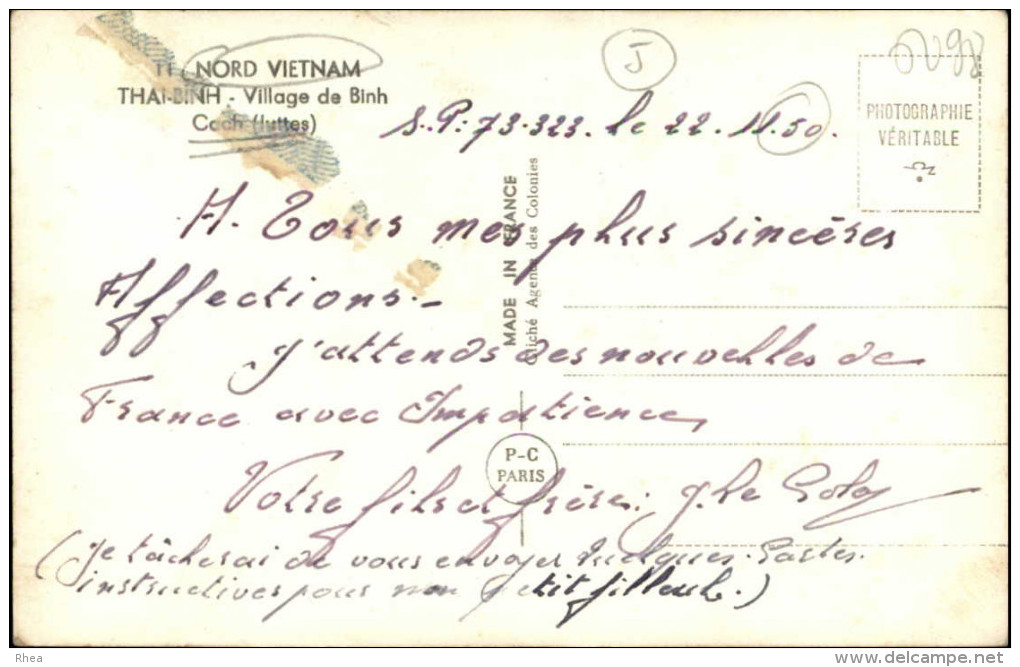 NORD VIETNAM
THAI-BINH - Village de Binh
Cach (luttes)
J
PHOTOGRAPHIE
VÉRITABLE
S.P: 73.323. le 22.11.50.
A. Tous mes plus sincères
Affections._
J'attends des nouvelles de
France avec Impatience,
Votre fils et frère; J. Le
(Je tâcherai de vous envoyer quelques. Cartes.
instructives pour mon petit filleul.)
MADE IN FRANCE
Cliché Agence des Colonies
P-C
PARIS
Rhea
http://www.delcampe.net